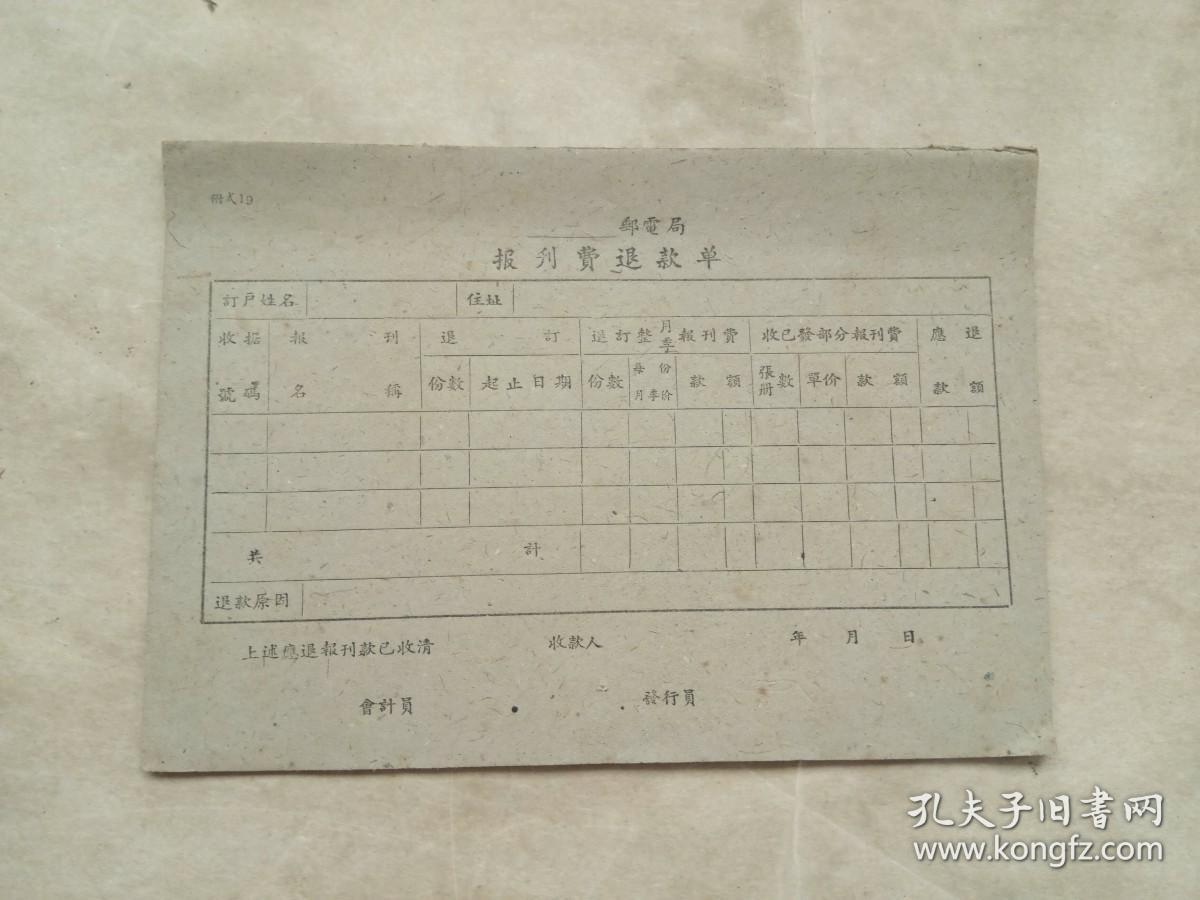 附式19
郵電局
报刊費退款单
訂戶姓名 住址
收据 報刊 退訂 退訂整月季報刊費 收已發部分報刊費 應退
號碼 名稱 份數 起止日期 份數 每份月季价 款額 張冊數 單价 款額 款額
共計
退款原因
上述應退報刊款已收清 收款人 年月日
會計員 發行員
孔夫子旧书网
www.kongfz.com